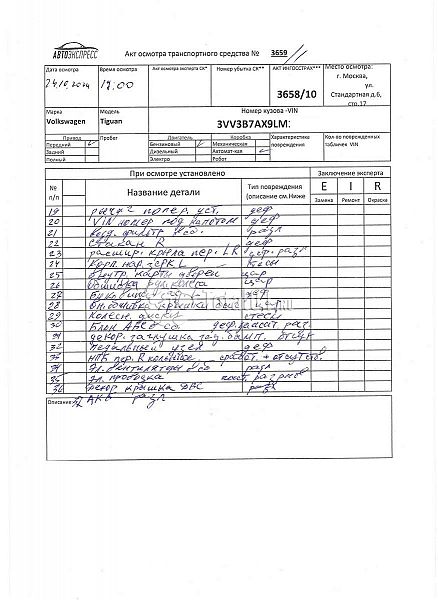 АВТОЭКСПРЕСС
Акт осмотра транспортного средства № 3659
Дата осмотра
24.10.2024
Время осмотра
Акт осмотра эксперта СК*
Номер убытка СК**
АКТ ИНГОССТРАХ***
3658/10
Место осмотра:
г. Москва,
ул.
Стандартная д.6,
стр.17
Марка
Volkswagen
Модель
Tiguan
Номер кузова -VIN
3VV3B7AX9LM:
Привод
Передний
Задний
Полный
Пробег
Двигатель
Бензиновый
Дизельный
Электро
Коробка
Механическая
Автомат-кая
Робот
Характеристика
повреждения
Кол-во поврежденных
табличек VIN
При осмотре установлено
Заключение эксперта
№
п/п
Название детали
Тип повреждения
(описание см.Ниже
E I R
Замена Ремонт Окраска
19 рычаг попер. уст. деф
20 VIN номер под капотом деф
21 возд. фильтр в сб. разл
22 стакан R деф
23 расшир. крыла пер. LR деф. разл
24 корп. нар. зерк L тёсы
25 внутр. карты двери цар
26 обшивка рул. колеса цар
27
28 вн. обшивка крышки
29 колесн. диски стесы
30 Блок АБС в сб деф.
31 декор. заглушка зад. бамп. отсут
32 педальный узел деф
33 НПБ пер. R сработ. + отсутств
34 эл. вентиляторы в сб разл
35 эл. проводка
36 декор крышка ДВС разл
Описание:
37 АКБ разл